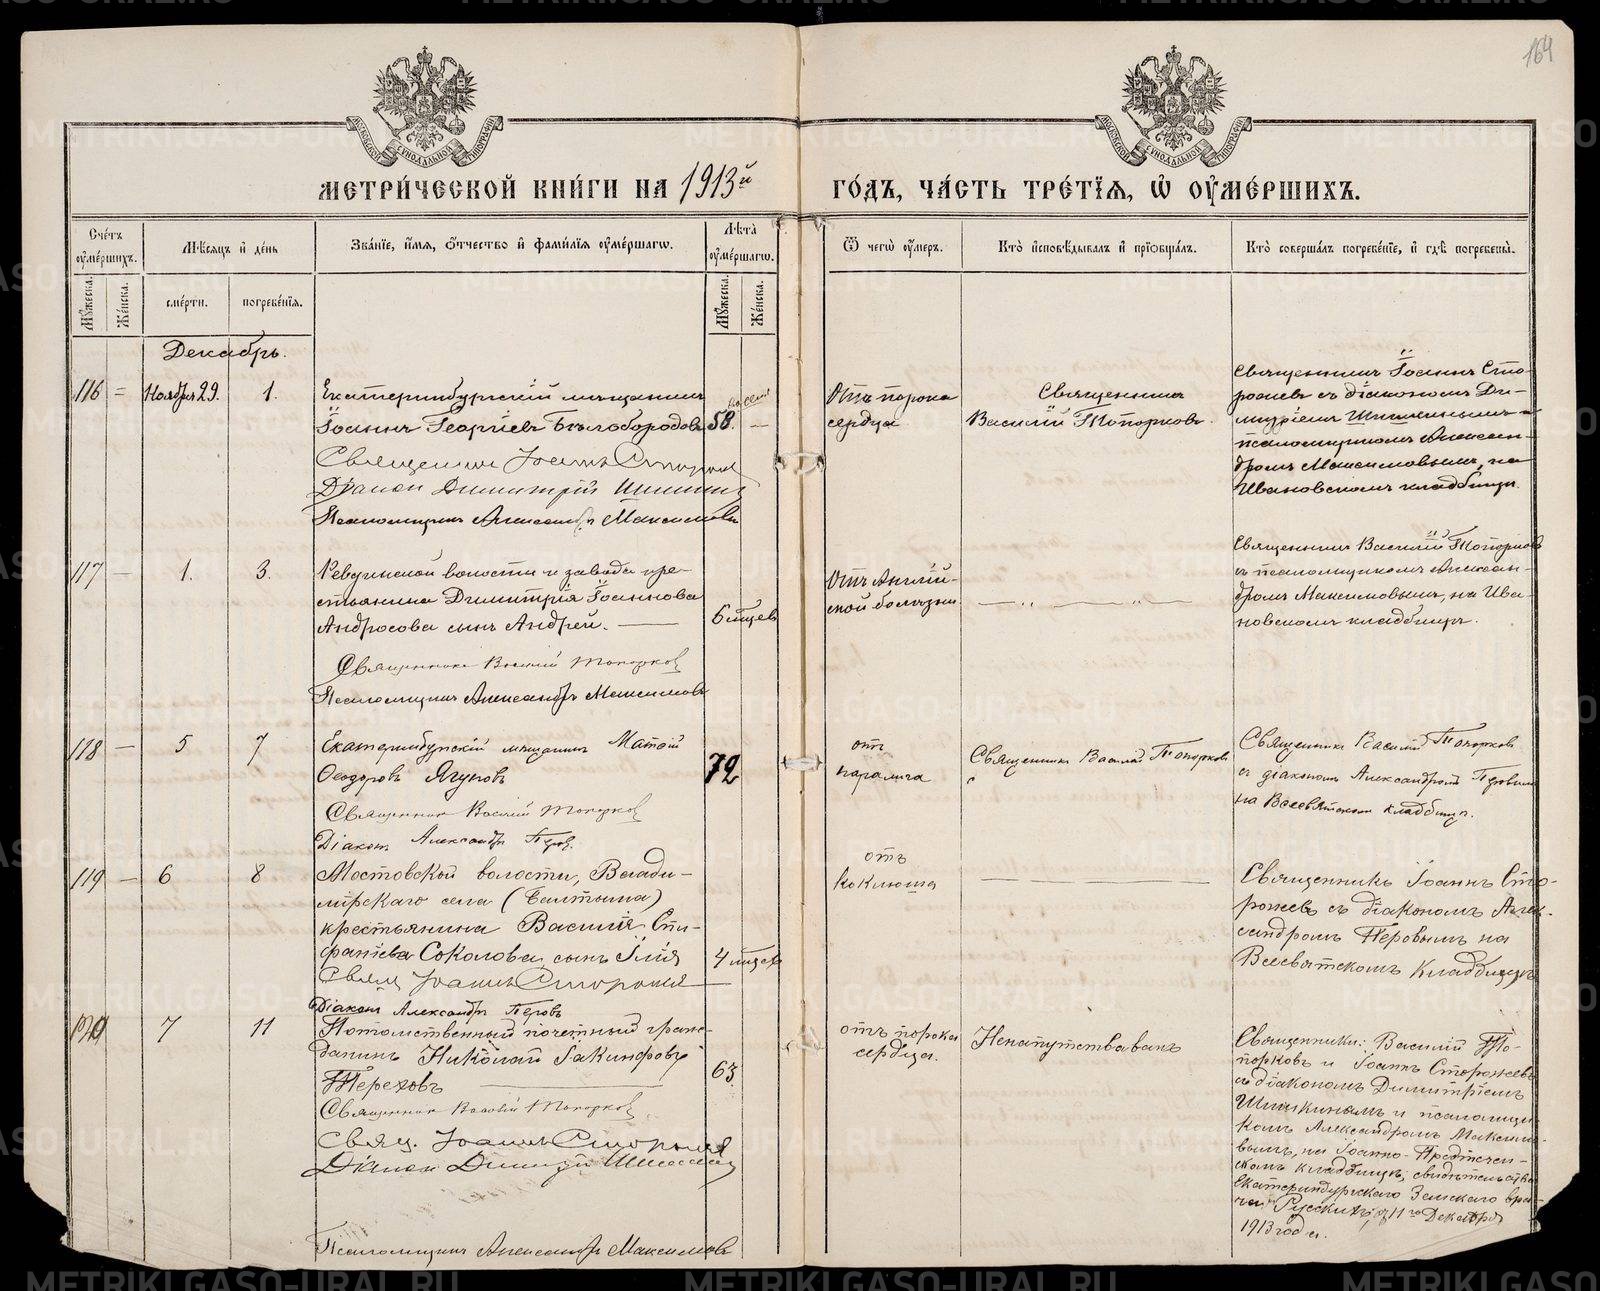 164
МОСКОВСКОЙ СѴНОДАЛЬНОЙ ТИПОГРАФІИ
МОСКОВСКОЙ СѴНОДАЛЬНОЙ ТИПОГРАФІИ
МЕТРИ́ЧЕСКОЙ КНИ́ГИ НА 1913й ГО́ДЪ, ЧА́СТЬ ТРЕ́ТІѦ, Ѡ҆ ОУ҆МЕ́РШИХЪ.
Сче́тъ оу҆ме́ршихъ.
Мѣ́сѧцъ и҆ де́нь
Зва́нїе, и҆́мѧ, ѻ҆́тчество и҆ фами́лїѧ оу҆ме́ршагѡ.
Лѣ́та оу҆ме́ршагѡ.
Ѿ чегѡ̀ оу҆́меръ.
Кто̀ и҆сповѣ́дывалъ и҆ прїѡбща́лъ.
Кто̀ соверша́лъ погребе́нїе, и҆ гдѣ̀ погребены̀.
Мꙋ́жеска.
Же́нска.
сме́рти.
погребе́нїѧ.
Мꙋ́жеска.
Же́нска.
Декабрь.
116 = Ноября 29. 1.
Екатеринбургскій мѣщанинъ
Іоаннъ Георгіевъ Бѣлобородовъ 58. —
Священникъ Іоаннъ Сторожев
Діакон Димитрій Шишкин
Псаломщикъ Александръ Максимовъ
Отъ порока
сердца
Священникъ
Василій Топорковъ.
Священникъ Іоаннъ Сто-
рожевъ съ діакономъ Ди-
митріемъ Шишкинымъ и
псаломщикомъ Алексан-
дромъ Максимовымъ, на
Ивановскомъ кладбищѣ.
117 — 1. 3.
Ревдинской волости и завода кре-
стьянина Димитрія Іоаннова
Андросова сынъ Андрей. — 6 мѣсяцев
Священникъ Василій Топорков
Псаломщикъ Александръ Максимовъ
Отъ Англій-
ской болѣзни
— „ — „ —
Священникъ Василій Топорковъ
съ псаломщикомъ Алексан-
дромъ Максимовымъ, на Ива-
новскомъ кладбищѣ.
118 — 5 7
Екатеринбургскій мѣщанинъ Матѳій
Ѳеодоровъ Ягуновъ 72
Священникъ Василій Топорков
Діаконъ Александръ Перов.
отъ
паралича
Священникъ Василій Топорковъ
Священникъ Василій Топорковъ
съ діакономъ Александромъ Перовымъ
на Всесвятскомъ кладбищѣ.
119 — 6 8
Мостовской волости, Влади-
мірскаго села (Балтыма)
крестьянина Василія Спи-
Соколова сынъ Илія 4 мѣсяца
Свящ Іоаннъ Сторожев
Діаконъ Александръ Перовъ
отъ
коклюша
—
Священникъ Іоаннъ Сто-
рожевъ съ діакономъ Алек-
сандромъ Перовымъ на
Всесвятскомъ кладбищѣ
120 7 11
Потомственный почетный граж-
данинъ Николай Іакинфовъ
Тереховъ — 63
Священникъ Василій Топорков
Свящ. Іоаннъ Сторожев
Діакон Димитрій Шишкин
Псаломщикъ Александръ Максимовъ
отъ порока
сердца.
Ненапутствованъ
Священники: Василій То-
порковъ и Іоаннъ Сторожевъ
съ діакономъ Димитріемъ
Шишкинымъ и псаломщи-
комъ Александромъ Максимо-
вымъ, на Іоанно-Предтечен-
скомъ кладбищѣ, свидѣтельство
Екатеринбургскаго Земскаго вра-
ча Русскихъ, отъ 11го Декабря
1913 года.
METRIKI.GASO-URAL.RU